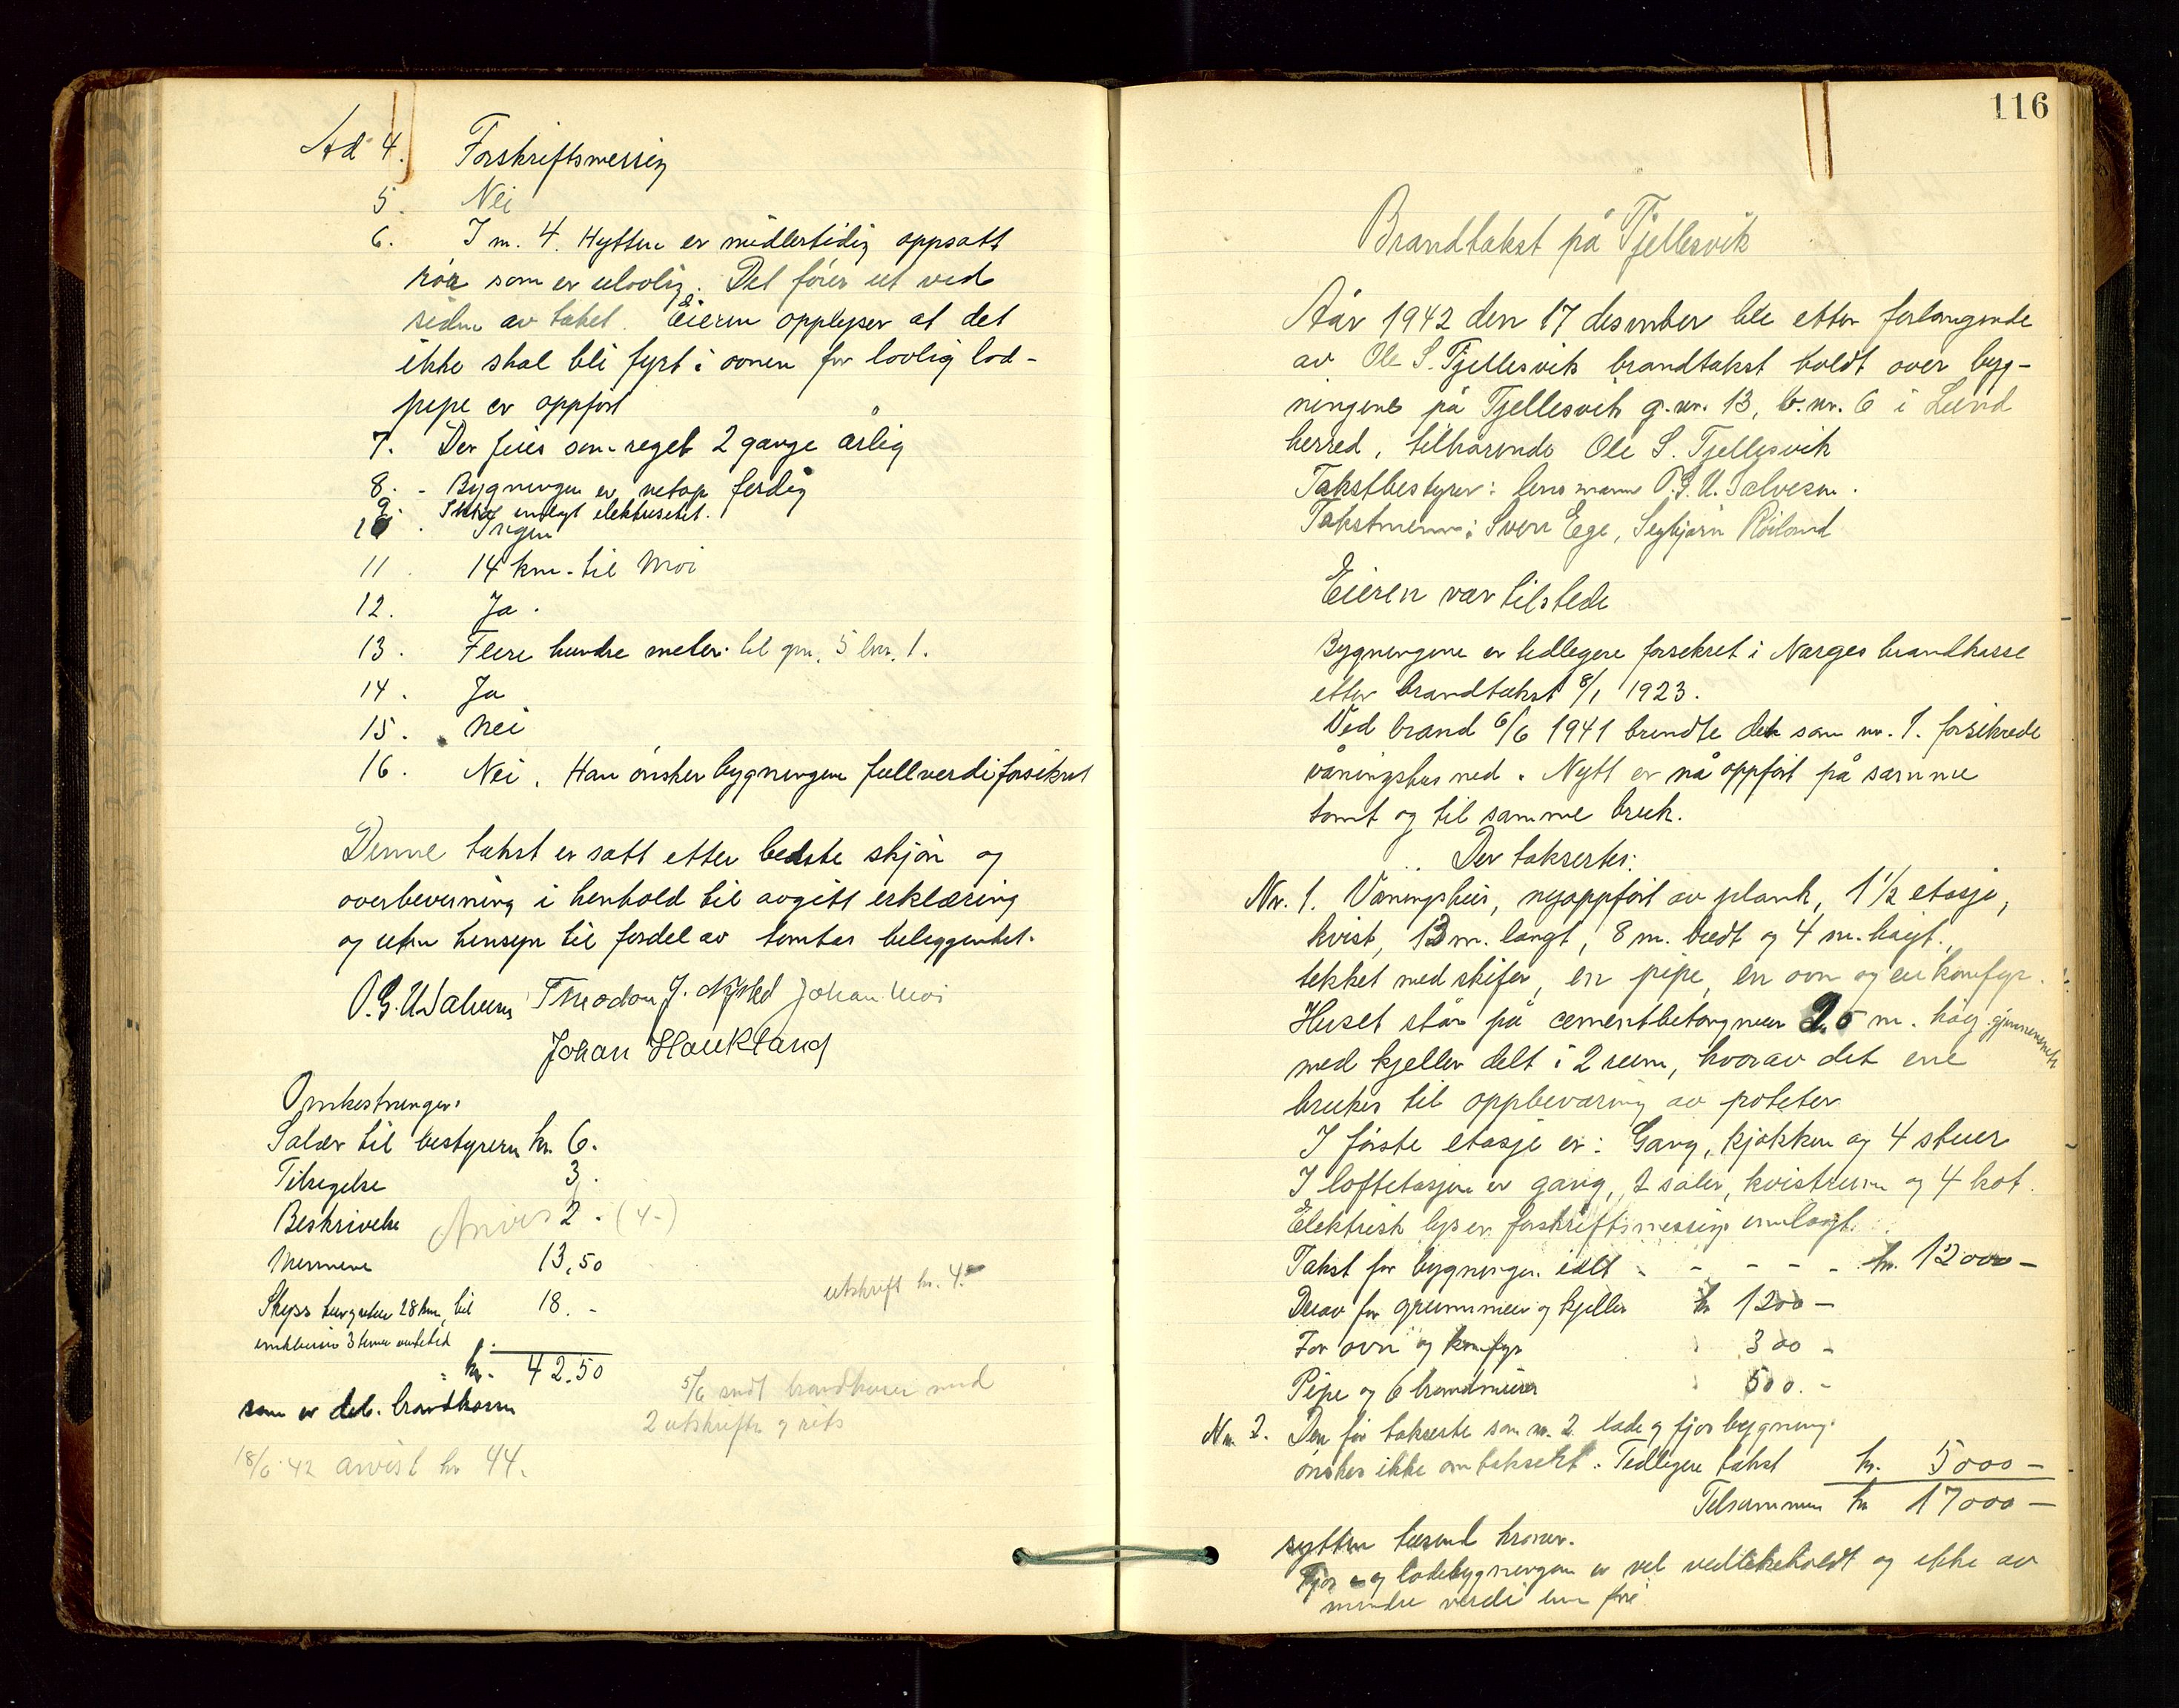 Ad 4. Forskriftsmessig
5. Nei
6. I nr. 4. Hytten er midlertidig oppsatt
rör som er ulovlig. Det förer ut ved
siden av taket. Eieren opplyser at det
ikke skal bli fyrt i ovnen för lovlig lod-
pipe er oppfört
7. Der feies som regel 2 gange årlig
8. - Bygningen er netop ferdig
9. innlagt elektrisitet.
10. Ingen
11. 14 km. til Moi
12. Ja.
13. Flere hundre meter til gnr. 5 bnr. 1.
14. Ja
15. Nei
16. Nei. Han önsker bygningene fullverdiforsikret
Denne takst er satt etter bedste skjön og
overbevisning i henhold til avgitt erklæring
og uten hensyn til fordel av tomtas beliggenhet.
O.G.U. Salvesen Theodor J. Nysted Johan Moi
Johan Haukland
Omkostninger:
Salær til bestyreren kr. 6.
Tilsigelse 3.
Beskrivelse 2. (4-)
Mennene 13,50
Skyss tur retur 28 km. bil 18. -
3 timer ventetid
kr. 42.50
som er deb. brandkassen
utskrift kr. 4.
5/6 sendt brandkassen med
2 utskrifter og riss
18/6 42 anvist kr 44.
116
Brandtakst på Tjellesvik
Aår 1942 den 17 desember ble etter forlangende
av Ole S. Tjellesvik brandtakst holdt over byg-
ningene på Tjellesvik g.nr. 13, b.nr. 6 i Lund
herred, tilhörende Ole S. Tjellesvik
Takstbestyrer: lensmann O.G.U. Salvesen.
Takstmenn: Sven Ege, Segbjörn Röiland
Eieren var tilstede
Bygningene er tidligere forsikret i Norges brandkasse
etter brandtakst 8/1 1923.
Ved brand 6/6 1941 brendte det som nr. 1. forsikrede
våningshus ned. Nytt er nå oppfört på samme
tomt og til samme bruk.
Der taksertes:
Nr. 1. Våningshus, nyoppfört av plank, 1 1/2 etasje,
kvist, 13 m. langt, 8 m. bredt og 4 m. högt.,
tekket med skifer, en pipe, en ovn og en komfyr.
Huset står på cementbetongmur 2,5 m. hög gjennemsnitt
med kjeller delt i 2 rum, hvorav det ene
brukes til oppbevaring av poteter
I förste etasje er: Gang, kjökken og 4 stuer
I loftetasjen er gang, 2 saler, kvistrum og 4 kot.
Elektrisk lys er forskriftsmessig innlagt.
Takst for bygningen ialt - - - - - kr. 12000 -
Derav for grunnmur og kjeller kr 1200 -
For ovn og komfyr 300 -
Pipe og 6 brandmurer 500. -
Nr. 2. Den för takserte som nr. 2 lade og fjösbygning
önskes ikke omtaksert. Tidligere takst kr. 5000 -
Tilsammen kr 17000 -
sytten tusend kroner.
Fjös - og ladebygningen er vel vedlikeholdt og ikke av
mindre verdi enn för